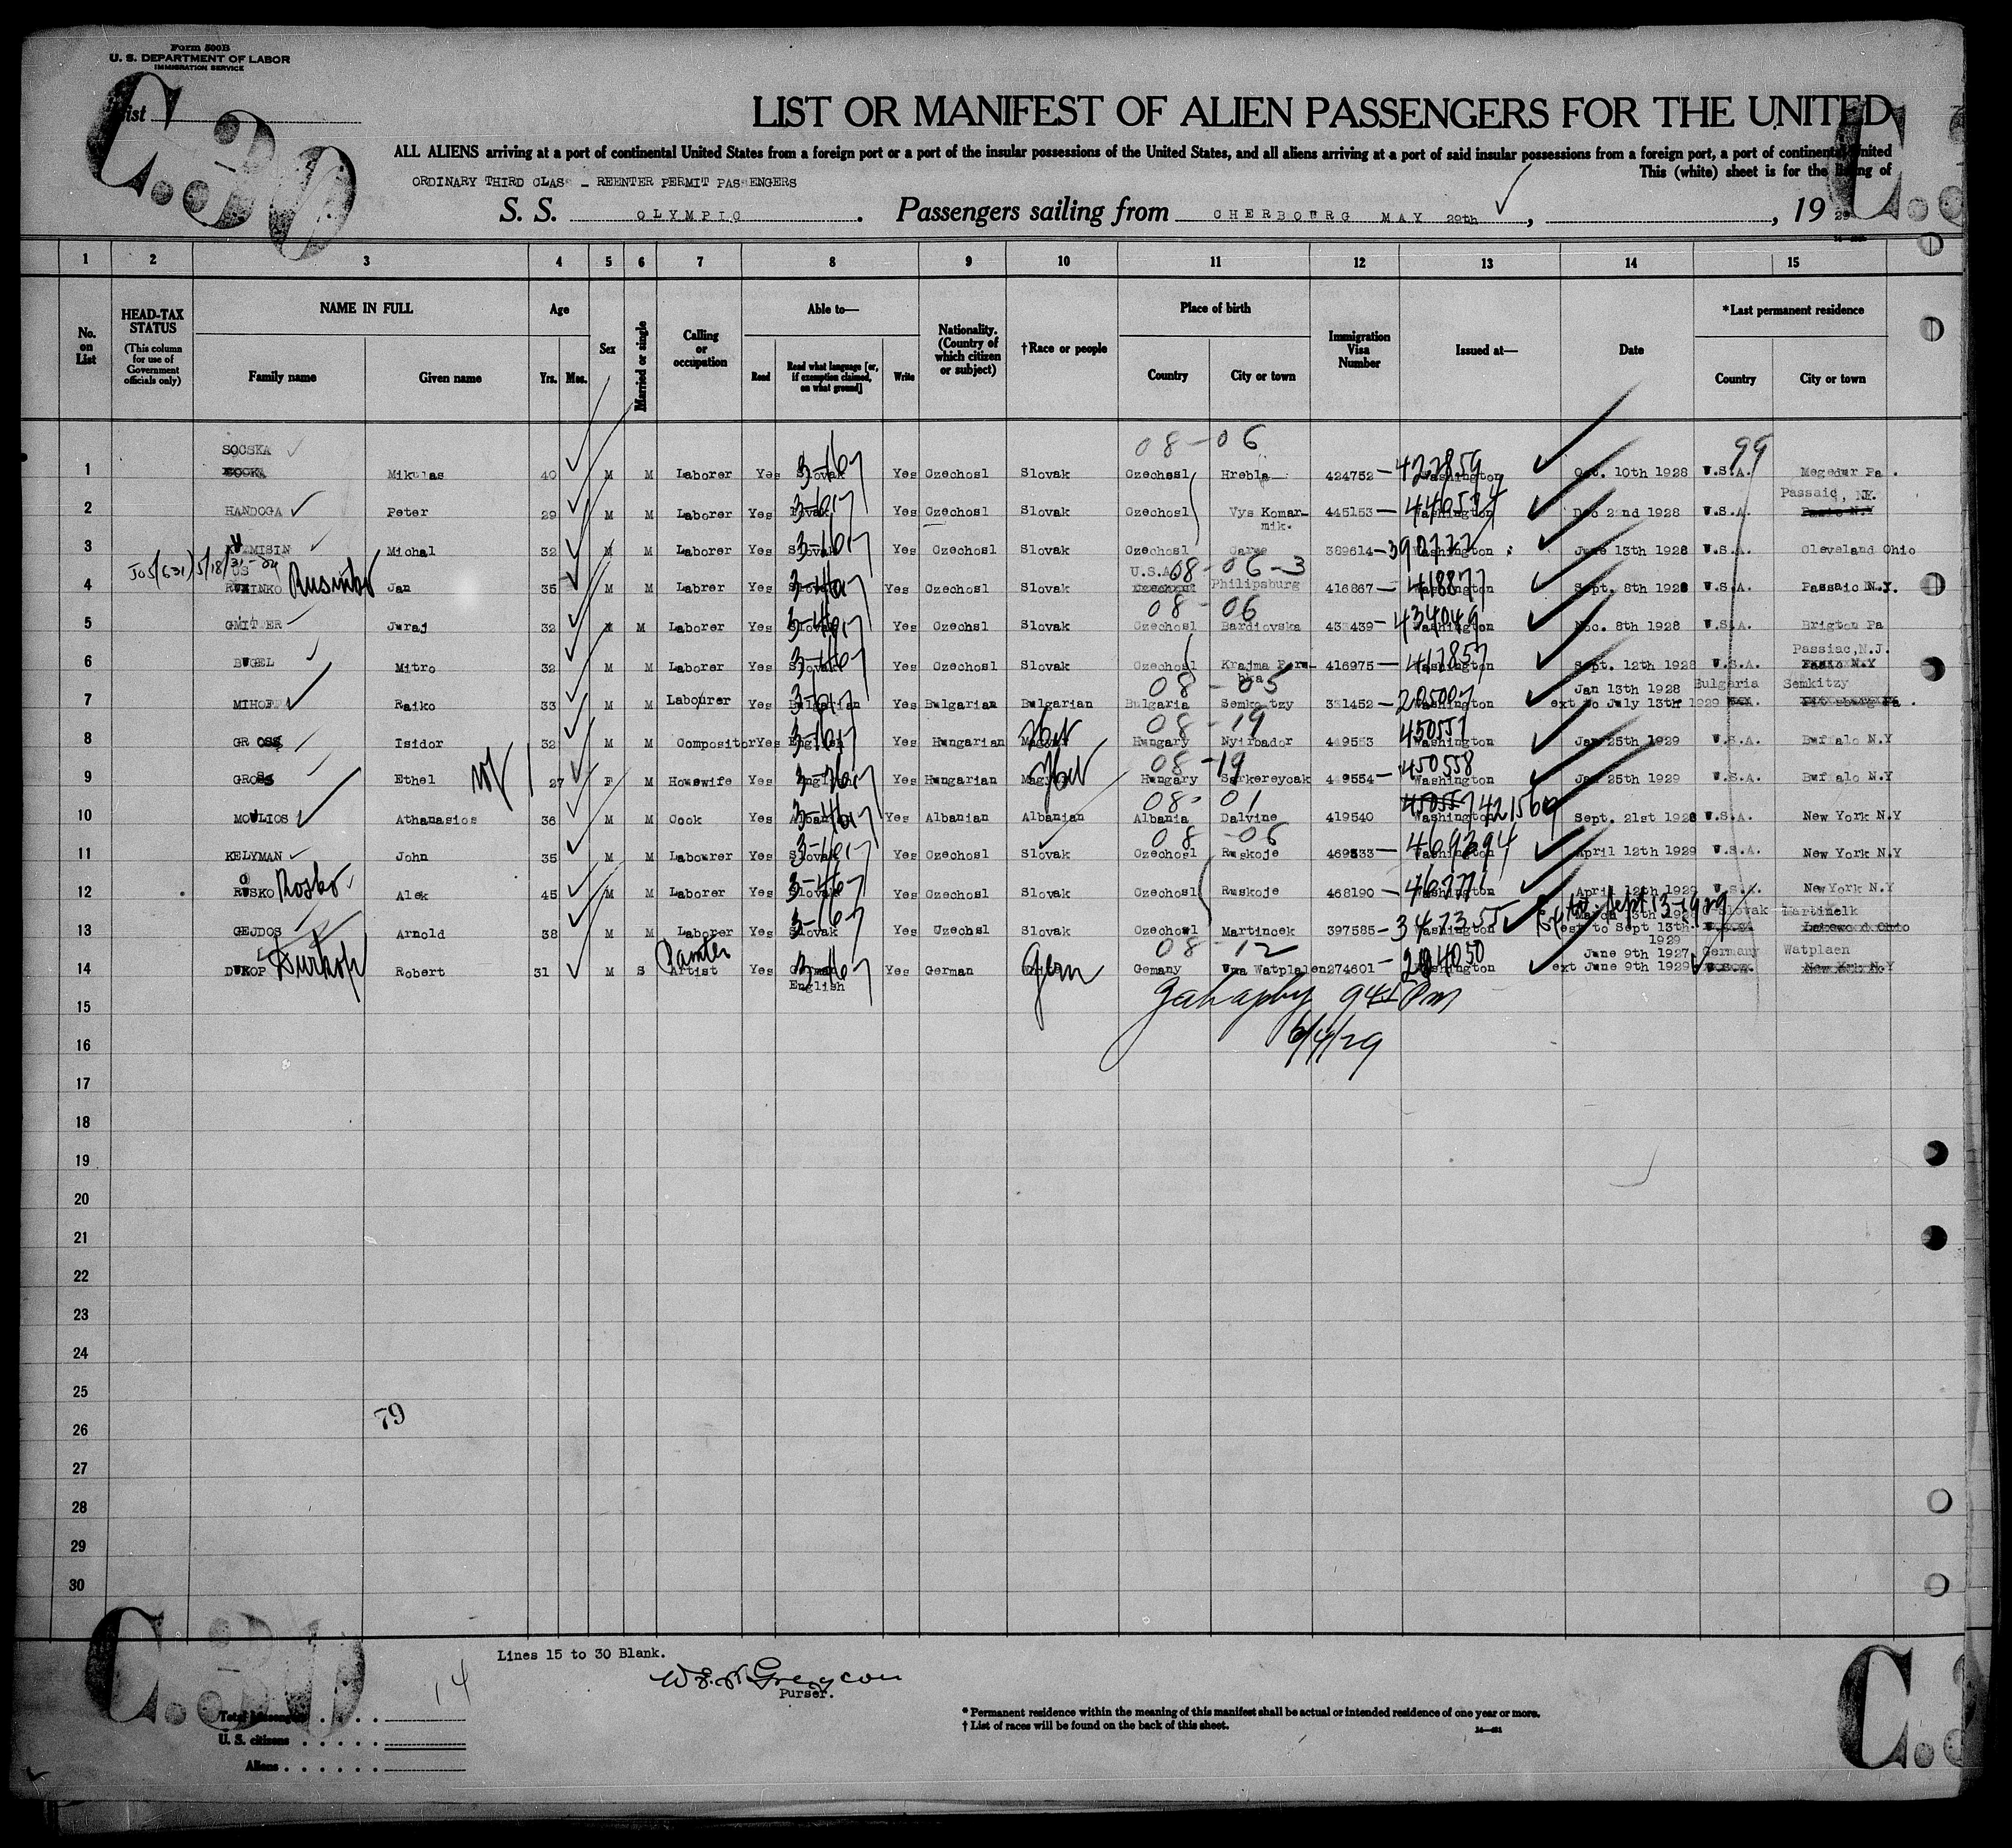 Form 500B
U. S. DEPARTMENT OF LABOR
IMMIGRATION SERVICE
List
LIST OR MANIFEST OF ALIEN PASSENGERS FOR THE UNITED
ALL ALIENS arriving at a port of continental United States from a foreign port or a port of the insular possessions of the United States, and all aliens arriving at a port of said insular possessions from a foreign port, a port of continental United
This (white) sheet is for the listing of
ORDINARY THIRD CLASS _ REENTER PERMIT PASSENGERS
S. S. OLYMPIC . Passengers sailing from CHERBOURG MAY 29th , , 19 29
1 2 3 4 5 6 7 8 9 10 11 12 13 14 15
No. on List
HEAD-TAX STATUS (This column for use of Government officials only)
NAME IN FULL
Family name Given name
Age
Yrs. Mos.
Sex
Married or single
Calling or occupation
Able to—
Read Read what language [or, if exemption claimed, on what ground] Write
Nationality. (Country of which citizen or subject)
†Race or people
Place of birth
Country City or town
Immigration Visa Number
Issued at—
Date
*Last permanent residence
Country City or town
08-06 99
SOCSKA
1 Mikulas 40 M M Laborer Yes Slovak 3-167 Yes Czechosl Slovak Czechosl Hrebla 424752 - 422859 Washington Oct. 10th 1928 U.S.A. Megedur Pa .
Passaic, N.
2 HANDOGA Peter 29 M M Laborer Yes Yes Czechosl Slovak Czechosl Vys Komar-mik. 445153 Washington Dec 22nd 1928 U.S.A.
3 Michal 32 M M Laborer Yes Slovak Yes Czechosl Slovak Czechosl 389614 - 390777 Washington June 13th 1928 U.S.A. Cleveland Ohio
U.S.A. 08-06-3
4 Rusinko Jan 35 M M Labrer Yes Yes Czechosl Slovak Philipsburg 416867 - 418877 Washington Sept. 8th 1928 U.S.A. Passaic N.Y.
08-06
5 Juraj 32 M M Laborer Yes Slovak Yes Czechsl Slovak Czechosl Bardiovska - 434049 Washington 8th 1928 U.S.A. Brigton Pa
Passiac,N.J.
6 BUGEL Mitro 32 M M Laborer Yes Slovak Yes Czechosl Slovak Czechosl Krajma 416975 - 417857 Washington Sept. 12th 1928 U.S.A.
08-05 Jan 13th 1928 Bulgaria Semkitzy
7 MIHOFF Raiko 33 M M Labourer Yes Bulgarian Yes Bulgarian Bulgarian Bulgaria Semkoitzy 331452 - 205007 Washington ext to July 13th 1929
08-19
8 GROSS Isidor 32 M M Compositor Yes English Yes Hungarian Heb Hungary Nyirbador 449553 450557 Washington Jan 25th 1929 U.S.A. Buffalo N.Y
08-19
9 GROSS Ethel 27 F M Housewife Yes English Yes Hungarian Heb Hungary Sarkereycak 449554 - 450558 Washington Jan 25th 1929 U.S.A. Buffalo N.Y
08-01
10 MOULIOS Athanasios 36 M M Cook Yes Albanian Yes Albanian Albanian Albania Dalvine 419540 421560 Washington Sept. 21st 1928 U.S.A. New York N.Y
08-06
11 KELYMAN John 35 M M Labourer Yes Slovak Yes Czechosl Slovak Czechosl Ruskoje 469333 Washington April 12th 1929 U.S.A. New York N.Y
12 RUSKO Rosko Alek 45 M M Laborer Yes Slovak Yes Czechosl Slovak Czechosl Ruskoje 468190 Washington April 12th 1929 U.S.A. New York N.Y
March 13th 1928 Slovak Martinclk
13 GEJDOS Arnold 38 M M Laborer Yes Slovak Yes Czechsl Slovak Czechowl Martincek 397585 - 347355 Washington to Sept 13th 1929
08-12 June 9th 1927 Germany Watplaen
14 DUKOP Durkop Robert 31 M S Artist Painter Yes German English Yes German Germ Gemany Watplalen 274601 - 204050 Washington ext June 9th 1929
15 945 Pm
16 6/4/29
17
18
19
20
21
22
23
24
25
26
79
27
28
29
30
Lines 15 to 30 Blank.
Purser.
14
Total passengers
U. S. citizens
Aliens
* Permanent residence within the meaning of this manifest shall be actual or intended residence of one year or more.
† List of races will be found on the back of this sheet.